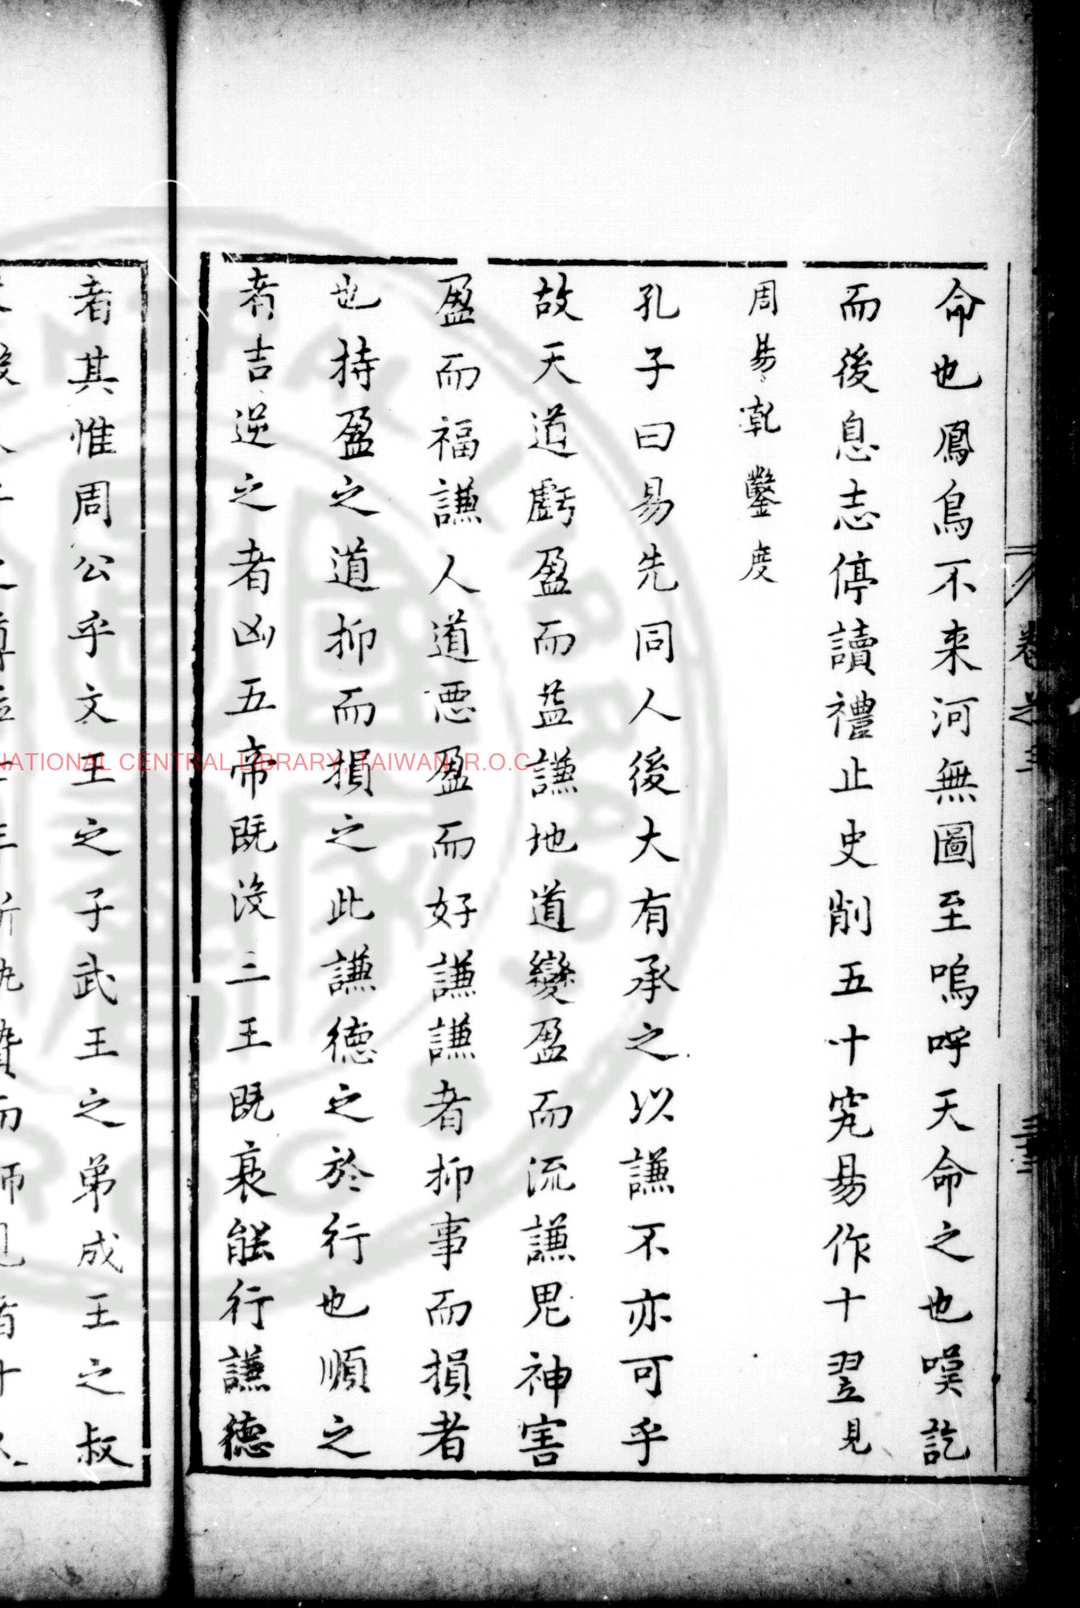 命也鳳鳥不来河無圖至嗚呼天命之也嘆訖
而後息志停讀禮止史削五十究易作十翌見
周易乾鑿度
孔子曰易先同人後大有承之以謙不亦可乎
故天道虧盈而益謙地道變盈而流謙鬼神害
盈而福謙人道惡盈而好謙謙者抑事而損者
也持盈之道抑而損之此謙德之於行也順之
者吉逆之者凶五帝既没三王既衰能行謙德
者其惟周公乎文王之子武王之弟成王之叔
NATIONAL CENTRAL LIBRARY, TAIWAN, R.O.C.